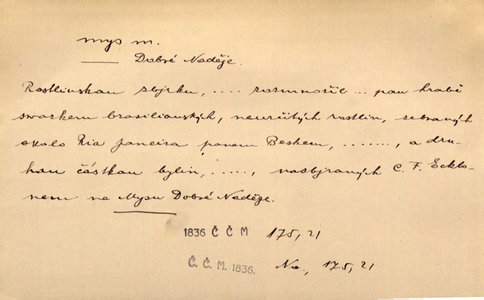 mys m.
Dobré Naděje.
Rostlinskau zbjrku, .... rozmnožil .. pan hrabě
svazkem brasilianských, neurčitých rostlin, sebraných
okolo Ria Janeira panem Beskem, ......., a dru-
hau částkau bylin, ....., nasbjraných C. F. Ecklo-
nem na Mysu Dobré Naděge.
1836 Č Č M 175, 21
Č. Č. M. 1836. Na, 175, 21